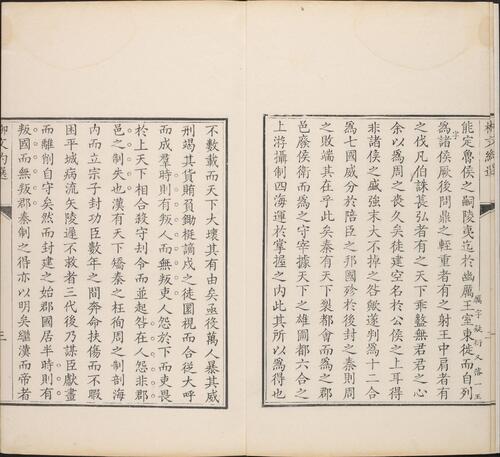 厲字疑衍又落一王
字
能定魯侯之嗣陵夷迄於幽厲王室東徙而自列
爲諸侯厥後問鼎之輕重者有之射王中肩者有
之伐凡伯誅萇弘者有之天下乖盭無君君之心
余以爲周之喪久矣徒建空名於公侯之上耳得
非諸侯之盛強末大不掉之咎歟遂判爲十二合
爲七國威分於陪臣之邦國殄於後封之秦則周
之敗端其在乎此矣秦有天下裂都會而爲之郡
邑廢侯衛而爲之守宰據天下之雄圖都六合之
上游攝制四海運於掌握之內此其所以爲得也
不數載而天下大壞其有由矣亟役萬人暴其威
刑竭其貨賄負鋤梃謫戍之徒圜視而合從大呼
而成羣時則有叛人而無叛吏人怨於下而吏畏
於上天下相合殺守刦令而並起咎在人怨非郡
邑之制失也漢有天下矯秦之枉徇周之制剖海
內而立宗子封功臣數年之間奔命扶傷而不暇
困平城病流矢陵遲不救者三代後乃謀臣獻畫
而離削自守矣然而封建之始郡國居半時則有
叛國而無叛郡秦制之得亦以明矣繼漢而帝者
柳文約選
三